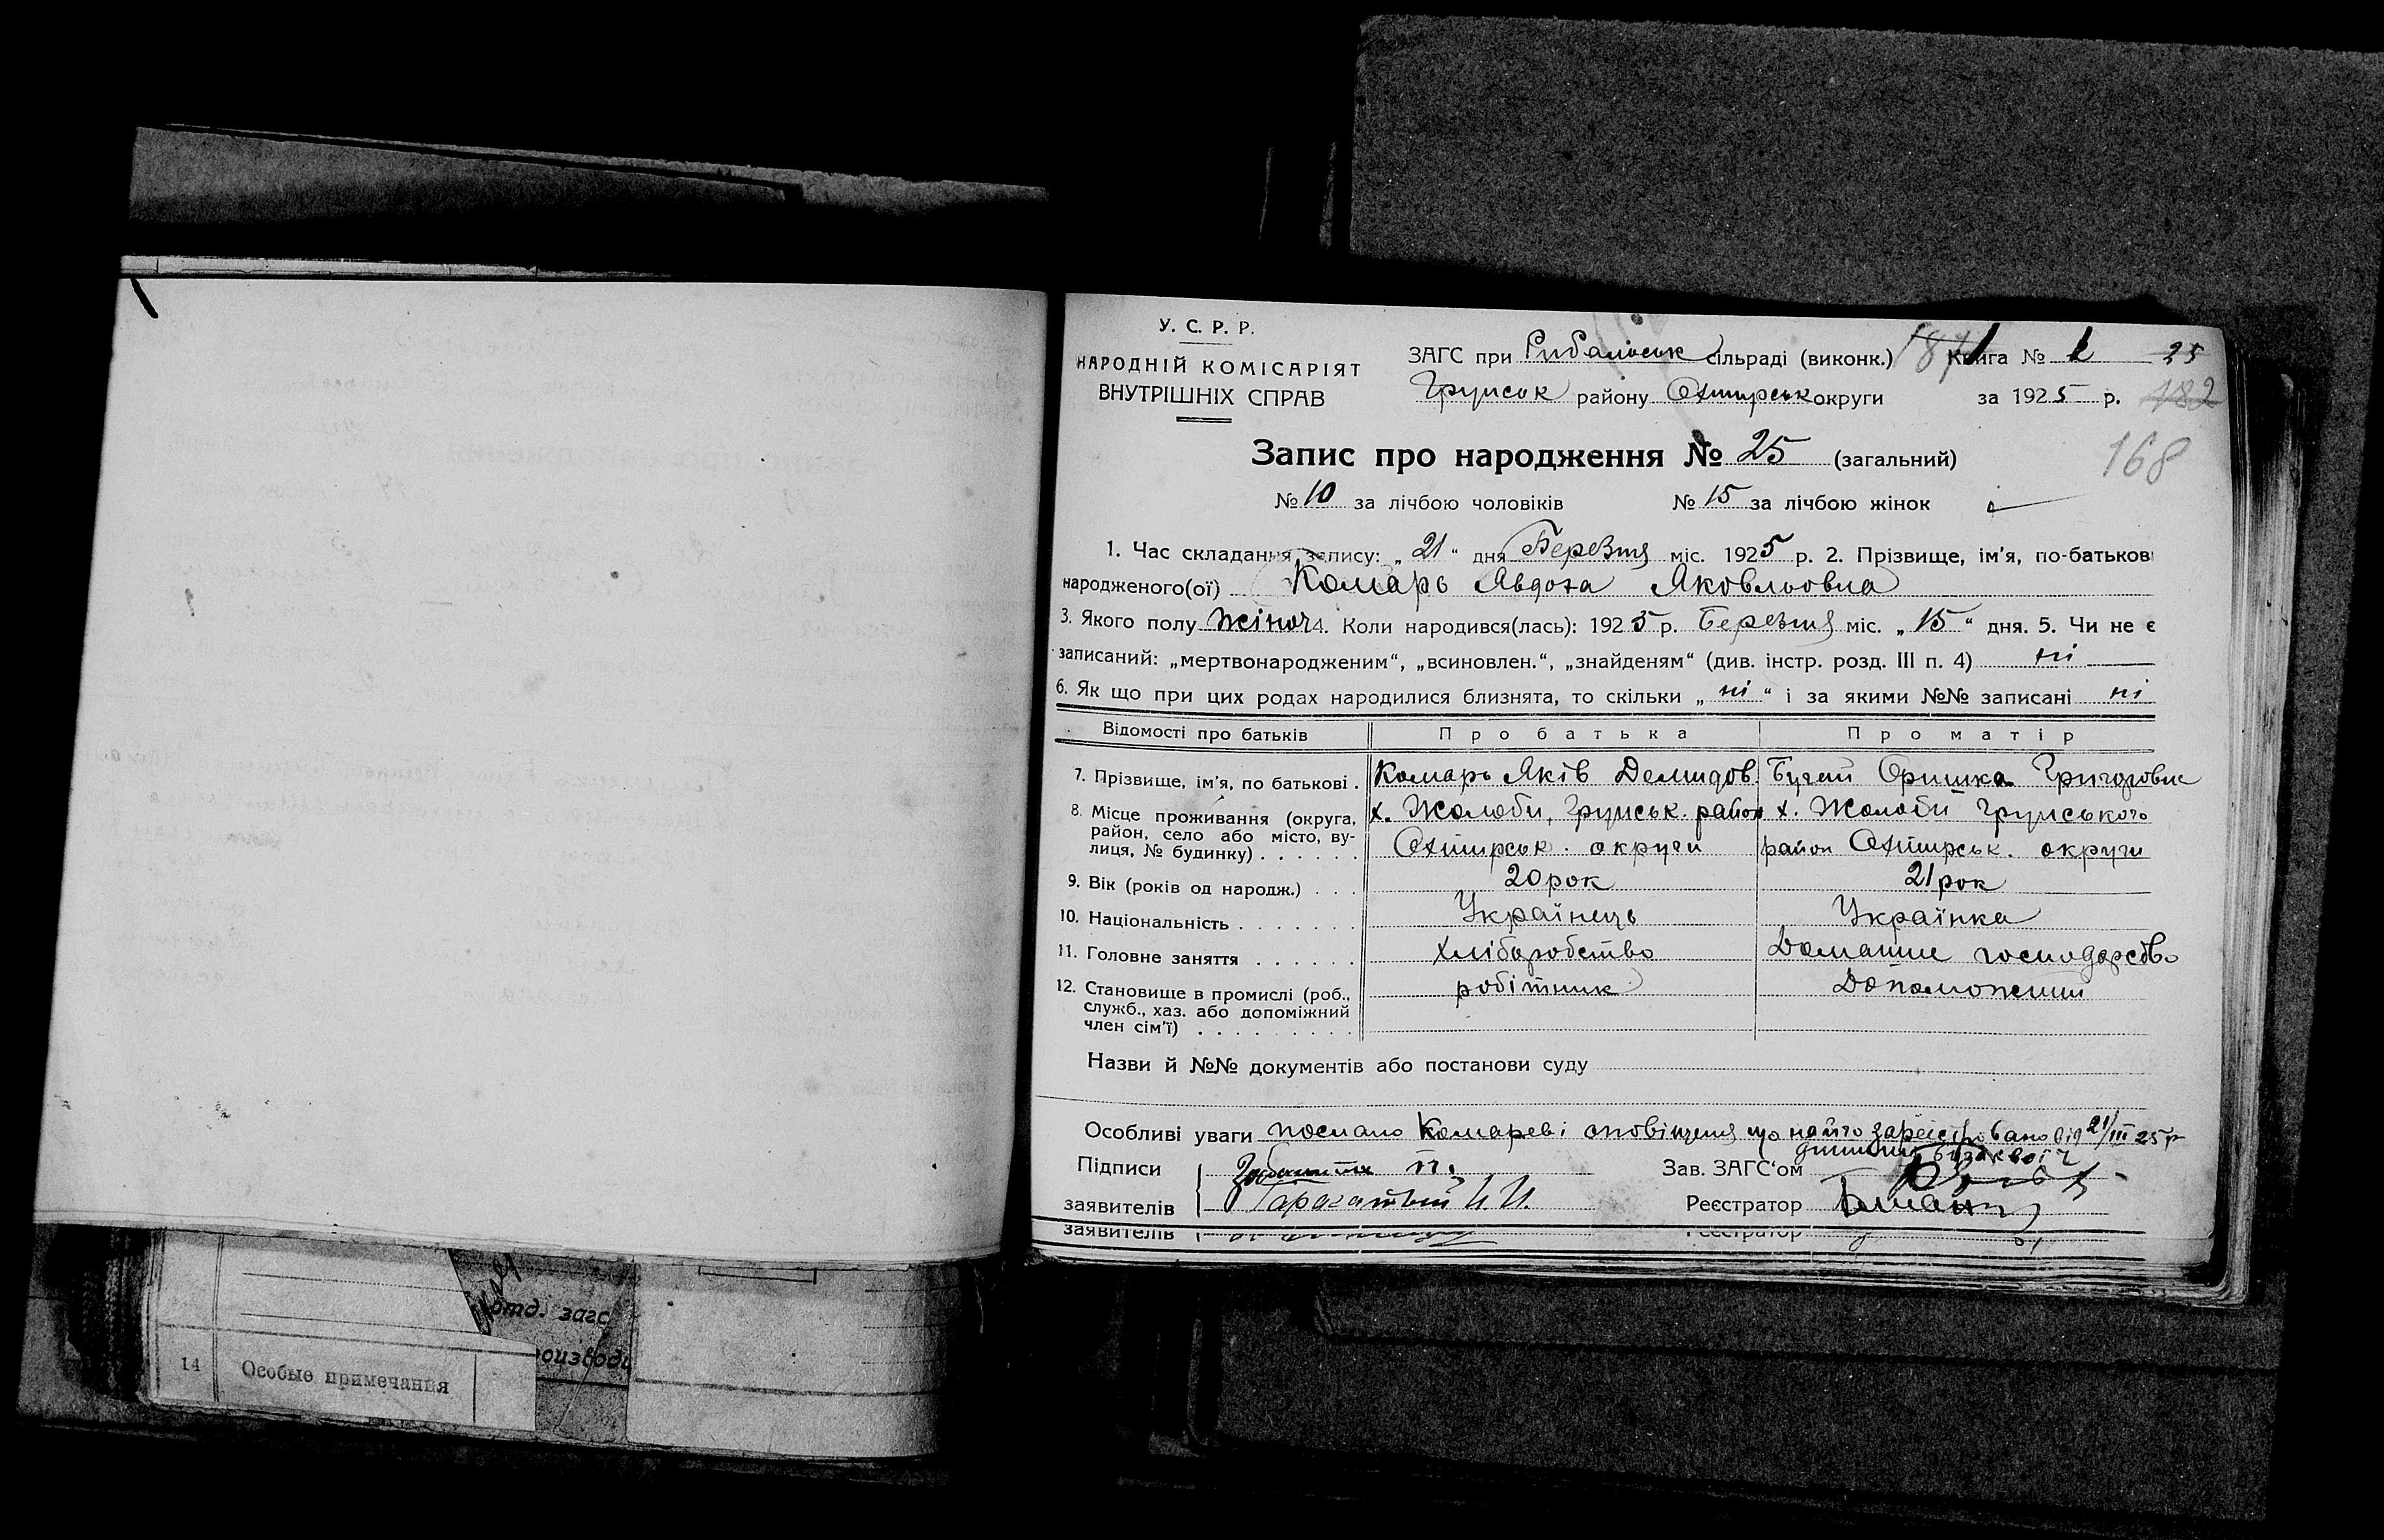 У. С. Р. Р.
НАРОДНІЙ КОМІСАРІЯТ
ВНУТРІШНІХ СПРАВ
ЗАГС при Рибальськ сільраді (виконк.) Книга № 25
Грунськ району Охтирськ округи за 1925 р. 182
168
Запис про народження № 25 (загальний)
№ 10 за лічбою чоловіків № 15 за лічбою жінок
1. Час складання запису: „ 21 “ дня Березня міс. 1925 р. 2. Прізвище, ім'я, по-батькові
народженого(ої) Комарь Явдоха Яковльовна
3. Якого полу жіноч 4. Коли народився(лась): 1925 р. Березня міс. „ 15 “ дня. 5. Чи не є
записаний: „мертвонародженим“, „всиновлен.“, „знайденям“ (див. інстр. розд. III п. 4) ні
6. Як що при цих родах народилися близнята, то скільки „ ні “ і за якими №№ записані ні
Відомості про батьків Про батька Про матір
7. Прізвище, ім'я, по батькові . Комарь Яків Демидов. Бугай Оришка Григоровна
8. Місце проживання (округа, район, село або місто, вулиця, № будинку) . . . . . .
х. Жолоби, Грунськ. район х. Жолоби Грунського
Охтирськ. округи район Охтирськ. округи
9. Вік (років од народж.) . . . 20 рок 21 рок
10. Національність . . . . . . . Українець Українка
11. Головне заняття . . . . . . хліборобство Домашнє господарство
12. Становище в промислі (роб., робітник
служб., хаз. або допоміжний
член сім'ї) . . . . . . . . .
Назви й №№ документів або постанови суду
Особливі уваги послано Комареві сповіщення що на його зареєстровано від 21/III 25 р
Підписи п. Зав. ЗАГС'ом
заявителів И. И. Реєстратор
заявителів Реєстратор
отд. загс
14 Особые примечания